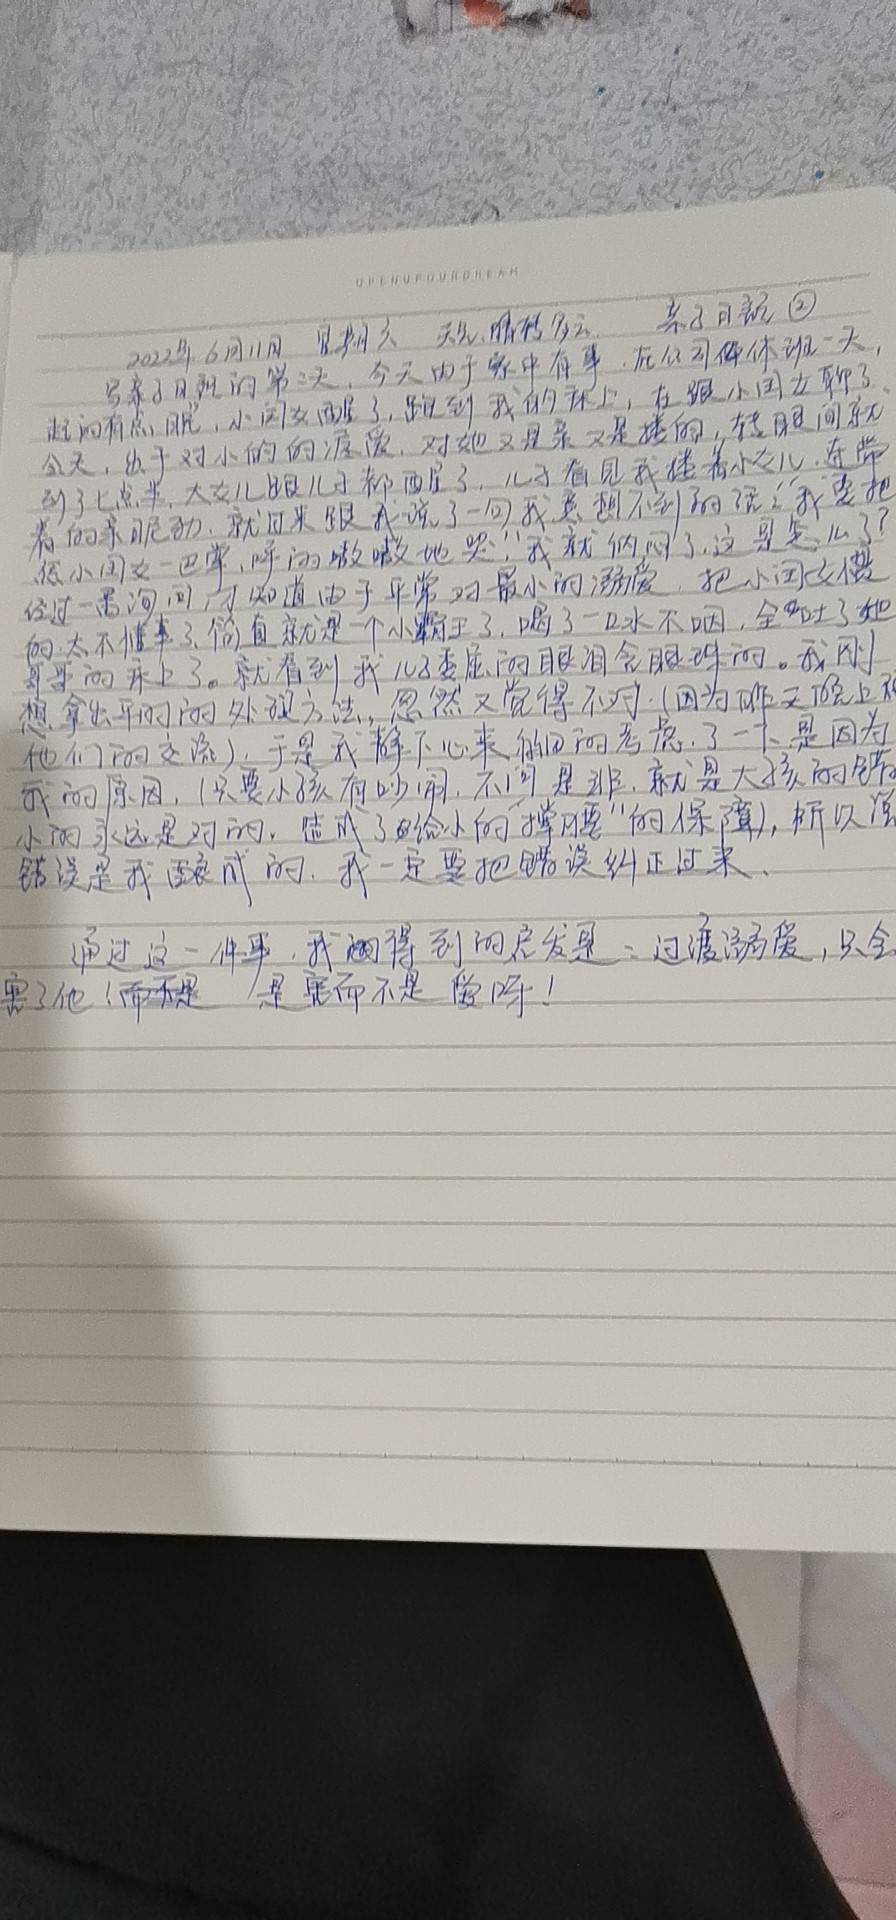 OPENUPOURDREAM
2022年6月11日 星期六 天气:晴转多云 亲子日记②
写亲子日记的第二天,今天由于家中有事,在公司倒休班一天,
起的有点晚,小闺女醒了,跑到我的床上,在跟小闺女聊了
会天,出于对小的的溺爱,对她又是亲又是搂的,转眼间就
到了七点半,大女儿跟儿子都醒了,儿子看见我搂着小女儿,连带
着的亲昵劲,就过来跟我说了一句我意想不到的话:“我要把
你小闺女一巴掌,呼的嗷嗷地哭!”我就纳闷了,这是怎么了?
经过一番询问,才知道由于平常对最小的溺爱,把小闺女惯
的太不懂事了,简直就是一个小霸王了,喝了一口水不咽,全吐了她
哥哥的床上了。就看到我儿子委屈的眼泪含眼球的。我刚
想拿出平时的处理方法,忽然又觉得不对,(因为昨天晚上和
他们的交流),于是我静下心来细细的考虑了一下,是因为
我的原因,(只要小孩有吵闹,不问是非,就是大孩的错
小的永远是对的,造成了给小的“撑腰”的保障),所以说
错误是我酿成的,我一定要把错误纠正过来、
通过这一件事,我得到的启发是:过渡溺爱,只会
害了他!而不是 是害而不是爱呀!